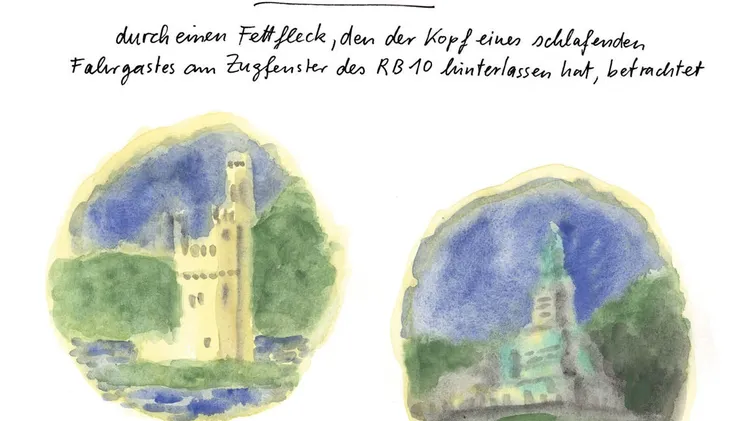 durch einen Fettfleck, den der Kopf eines schlafenden
Fahrgastes am Zugfenster des RB10 hinterlassen hat, betrachtet